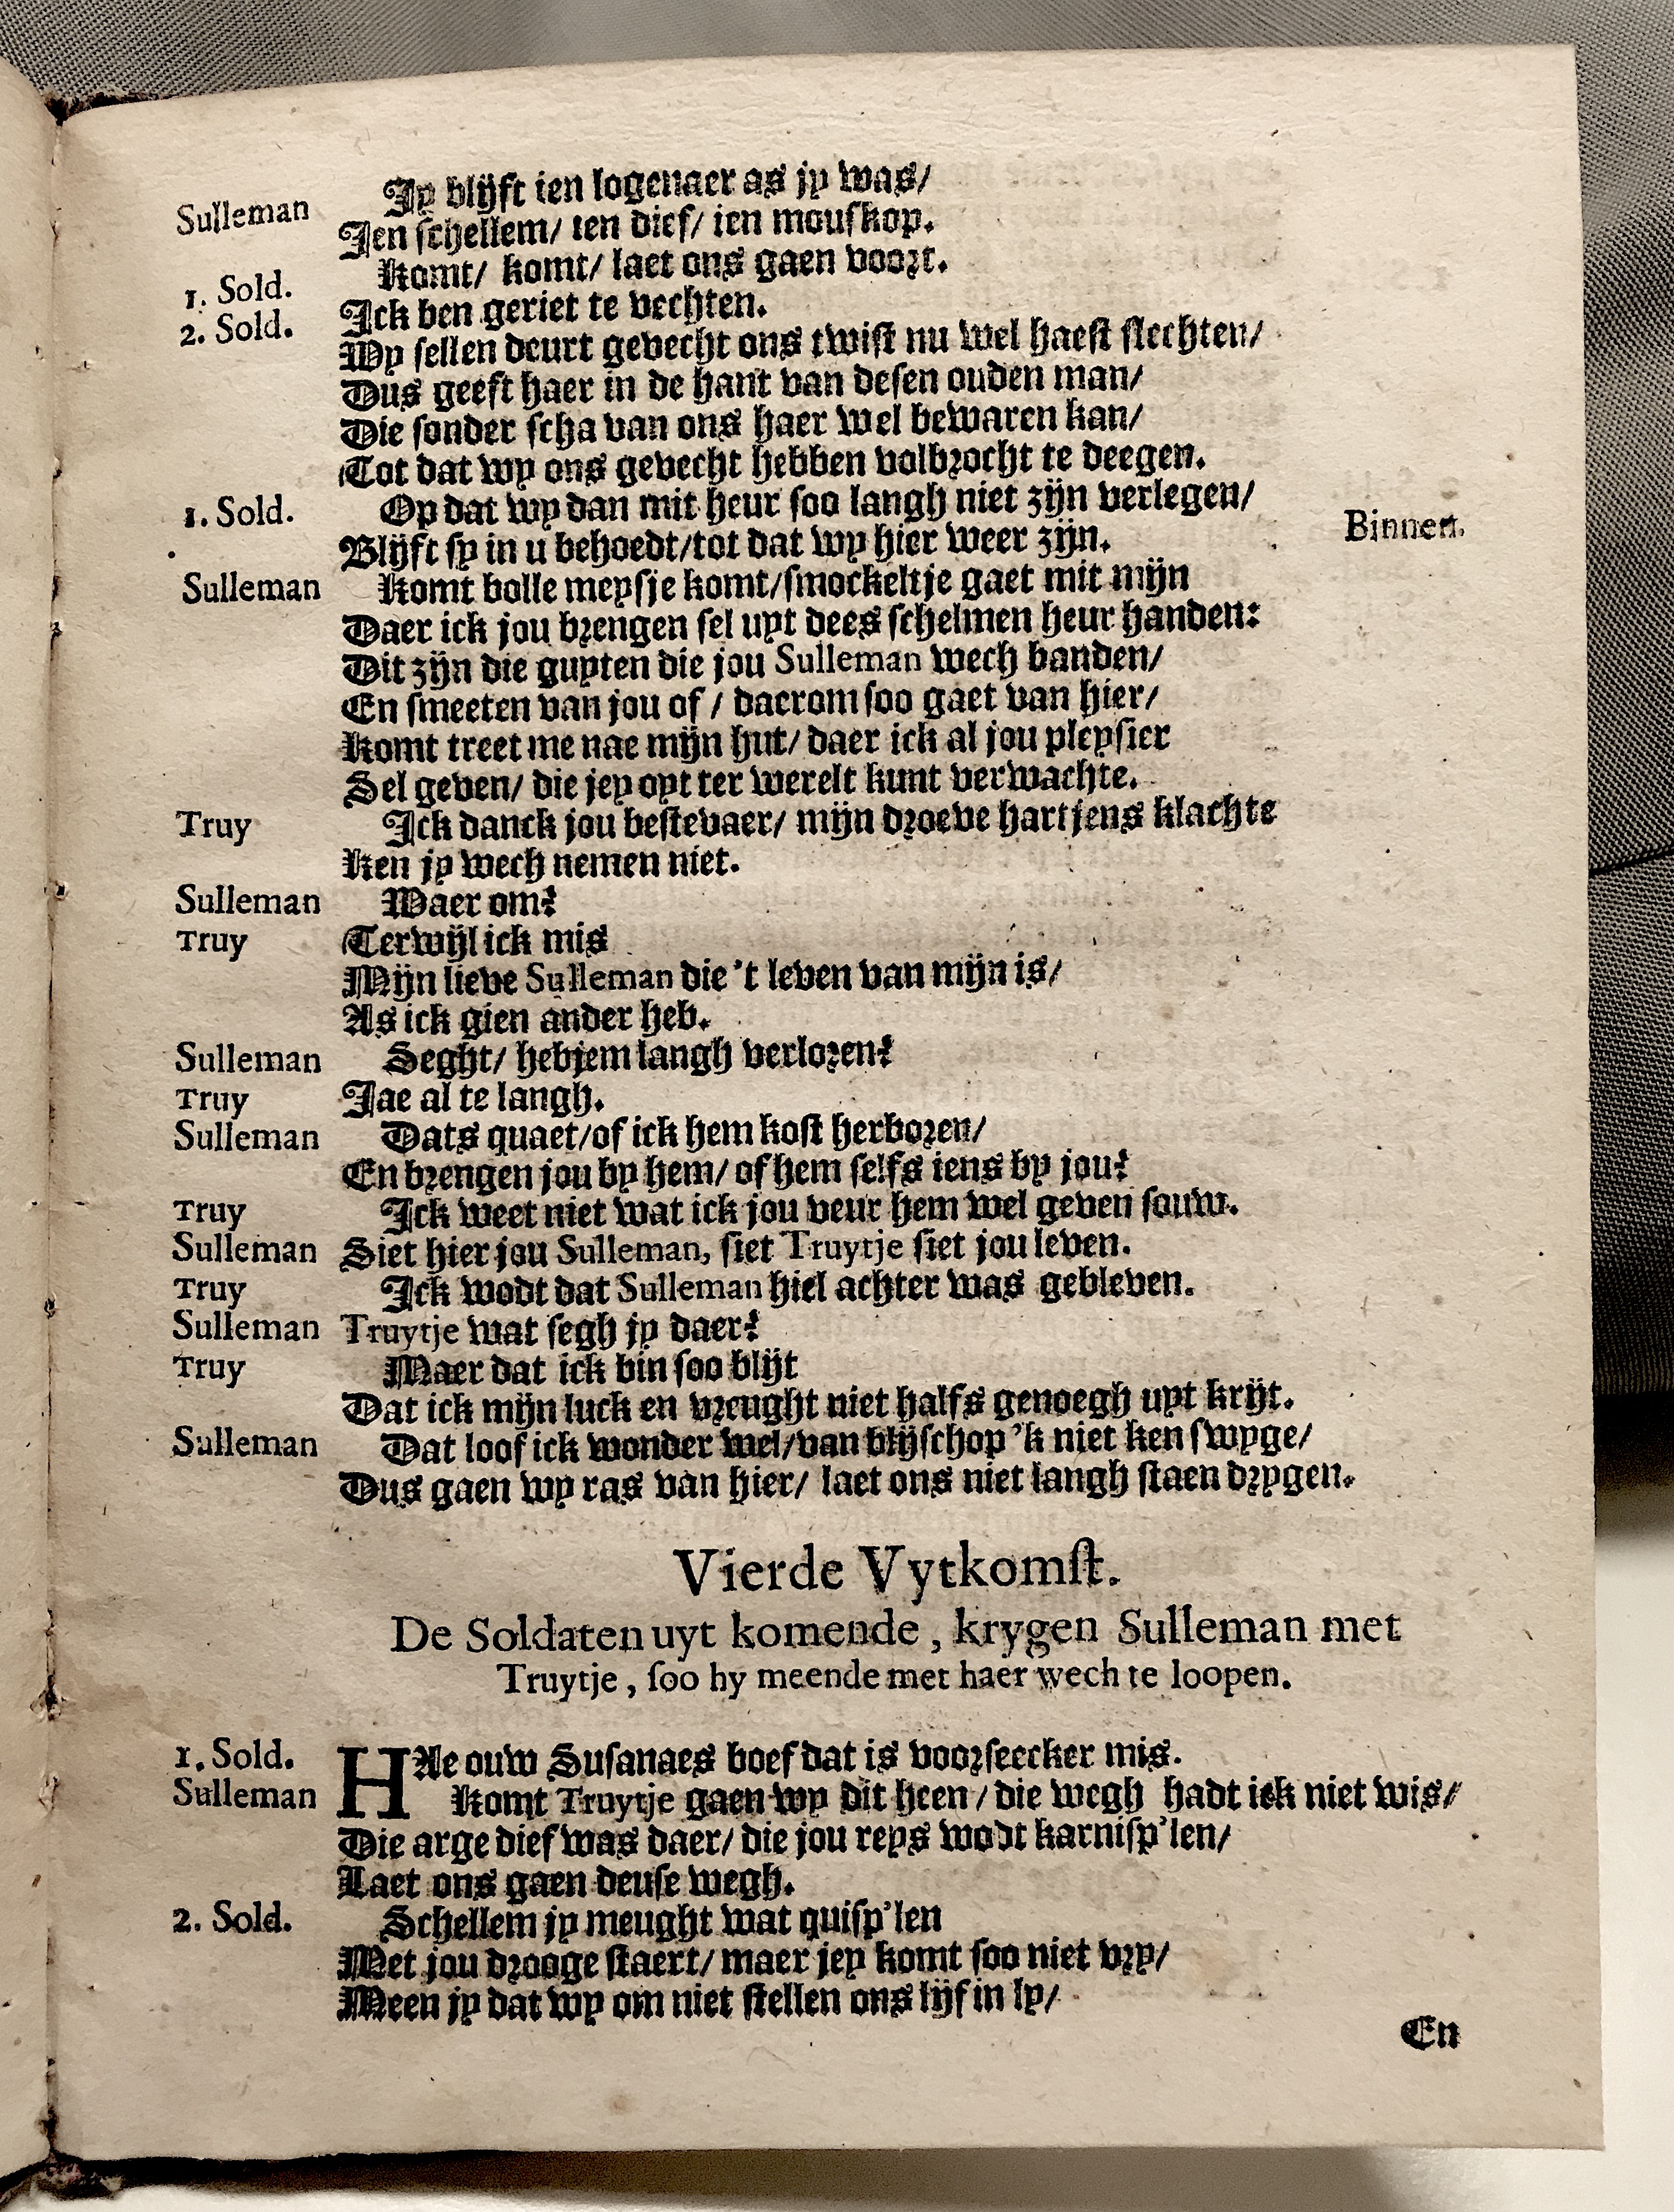 Jy blijft ien logenaer as jy was/
Sulleman Jen schellem/ ien dief/ ien mouskop.
Komt/ komt/ laet ons gaen voort.
1. Sold. Ick ben geriet te vechten.
2. Sold. Wy sellen deurt gevecht ons twist nu wel haest slechten/
Dus geeft haer in de hant van desen ouden man/
Die sonder scha van ons haer wel bewaren kan/
Tot dat wy ons gevecht hebben volbrocht te deegen.
1. Sold. Op dat wy dan mit heur soo langh niet zijn verlegen/
Blijft sy in u behoedt/tot dat wy hier weer zijn. Binnen.
Sulleman Komt bolle meysje komt/smockeltje gaet mit mijn
Daer ick jou brengen sel uyt dees schelmen heur handen:
Dit zijn die guyten die jou Sulleman wech banden/
En smeeten van jou of / daerom soo gaet van hier/
Komt treet me nae mijn hut/ daer ick al jou pleysier
Sel geven/ die jey oyt ter werelt kunt verwachte.
Truy Ick danck jou bestevaer/ mijn droeve hartjens klachte
Ken jy wech nemen niet.
Sulleman Waer om?
Truy Terwijl ick mis
Mijn lieve Sulleman die 't leven van mijn is/
As ick gien ander heb.
Sulleman Seght/ hebjem langh verloren?
Truy Jae al te langh.
Sulleman Dats quaet/of ick hem kost herboren/
En brengen jou by hem/ of hem selfs iens by jou?
Truy Ick weet niet wat ick jou veur hem wel geven souw.
Sulleman Siet hier jou Sulleman, siet Truytje siet jou leven.
Truy Ick wodt dat Sulleman hiel achter was gebleven.
Sulleman Truytje wat segh jy daer?
Truy Maer dat ick bin soo blijt
Dat ick mijn luck en vreught niet halfs genoegh uyt krijt.
Sulleman Dat loof ick wonder wel/van blijschop 'k niet ken swyge/
Dus gaen wy ras van hier/ laet ons niet langh staen drygen.
Vierde Vytkomst.
De Soldaten uyt komende, krygen Sulleman met
Truytje, soo hy meende met haer wech te loopen.
1. Sold. HAe ouw Susanaes boef dat is voorseecker mis.
Sulleman Komt Truytje gaen wy dit heen/ die wegh hadt ick niet wis/
Die arge dief was daer/ die jou reys wodt karnisp'len/
Laet ons gaen deuse wegh.
2. Sold. Schellem jy meught wat quisp'len
Met jou drooge staert/ maer jey komt soo niet vry/
Meen jy dat wy om niet stellen ons lijf in ly/
En